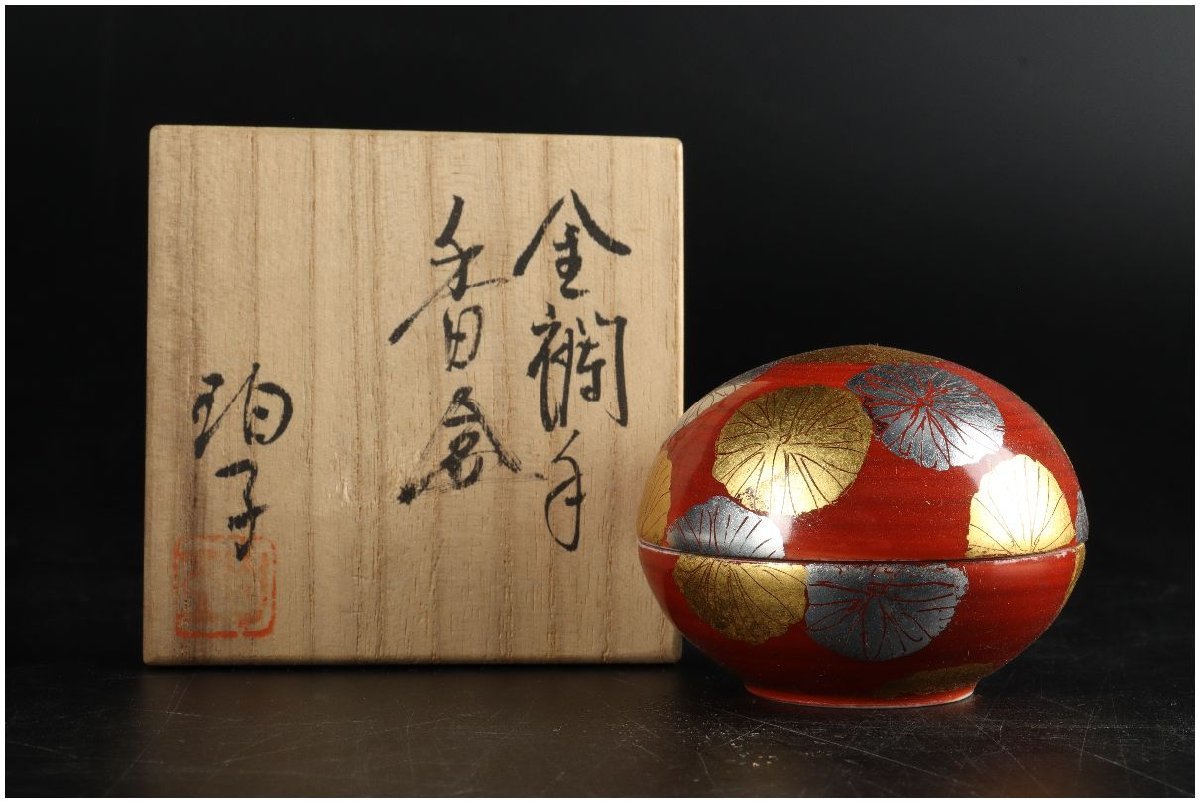 金襴手
香合
珀子